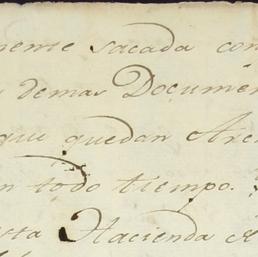 mente sacada con
demas Documen
que quedan Arc
n todo tiempo.
sta Hacienda